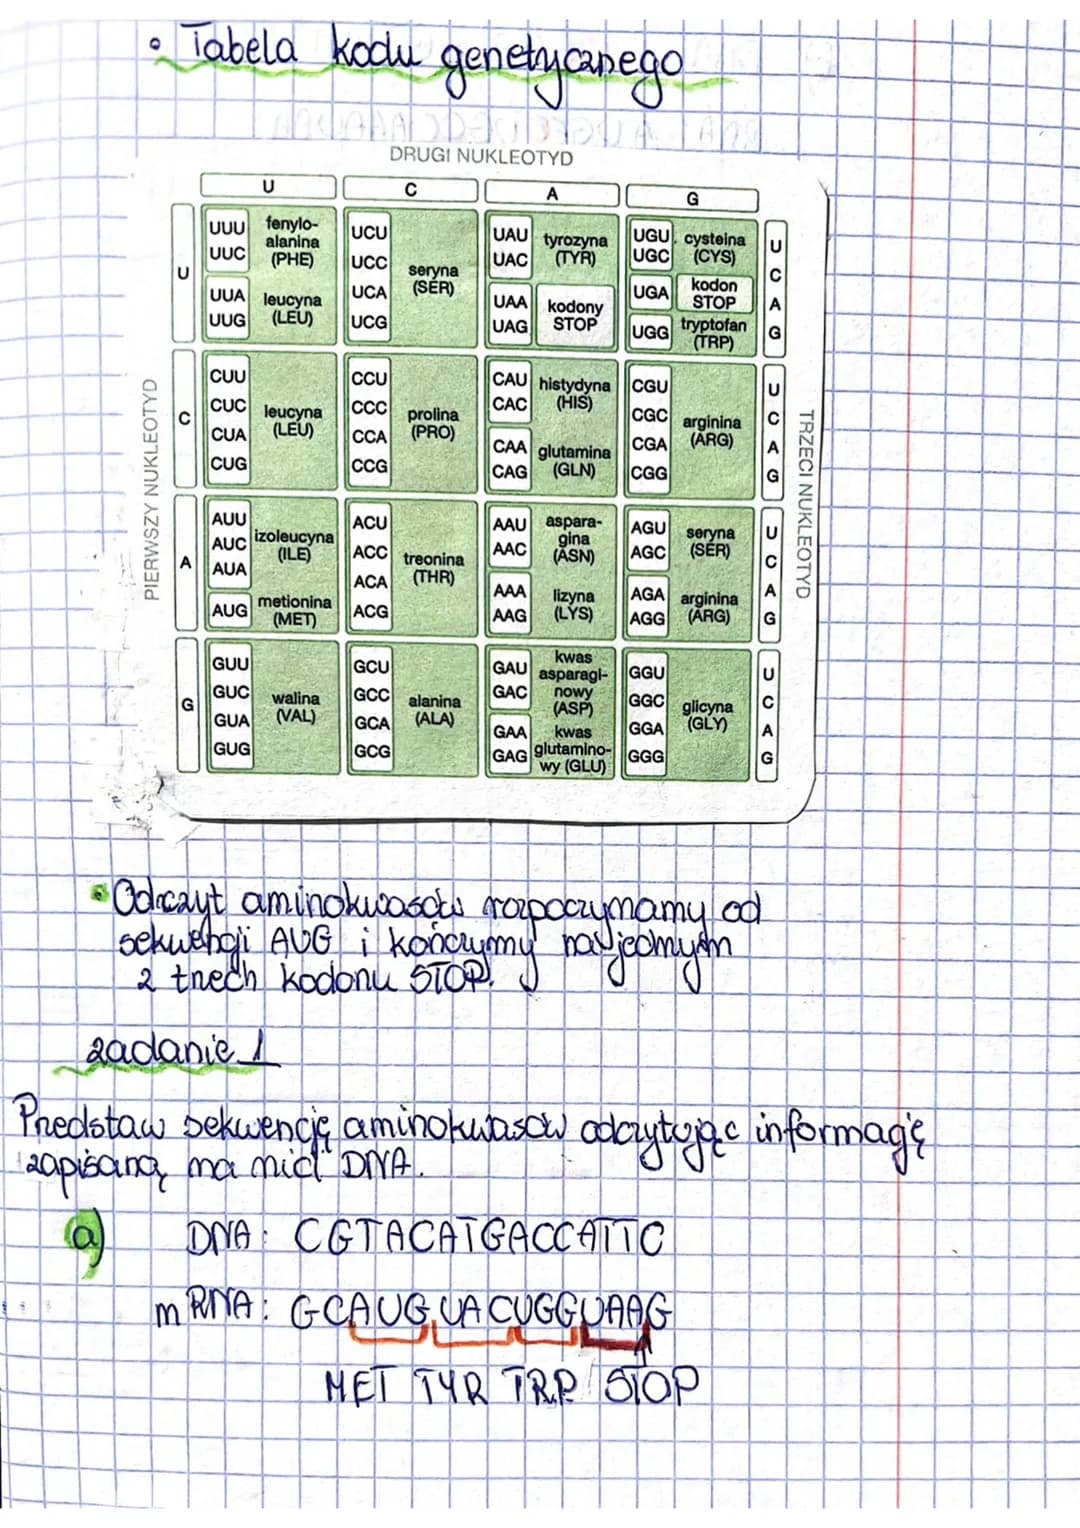 • Tabela kodu genetycznego
DRUGI NUKLEOTYD
U C A G
PIERWSZY NUKLEOTYD
TRZECI NUKLEOTYD
U
UUU UUC fenylo-alanina (PHE)
UUA UUG leucyna (LEU)
UCU UCC UCA UCG seryna (SER)
UAU UAC tyrozyna (TYR)
UAA UAG kodony STOP
UGU UGC cysteina (CYS)
UGA kodon STOP
UGG tryptofan (TRP)
U C A G
C
CUU CUC CUA CUG leucyna (LEU)
CCU CCC CCA CCG prolina (PRO)
CAU CAC histydyna (HIS)
CAA CAG glutamina (GLN)
CGU CGC CGA CGG arginina (ARG)
U C A G
A
AUU AUC AUA izoleucyna (ILE)
AUG metionina (MET)
ACU ACC ACA ACG treonina (THR)
AAU AAC aspara-gina (ASN)
AAA AAG lizyna (LYS)
AGU AGC seryna (SER)
AGA AGG arginina (ARG)
U C A G
G
GUU GUC GUA GUG walina (VAL)
GCU GCC GCA GCG alanina (ALA)
GAU GAC kwas asparagi-nowy (ASP)
GAA GAG kwas glutamino-wy (GLU)
GGU GGC GGA GGG glicyna (GLY)
U C A G
• Odczyt aminokwasów rozpoczynamy od
sekwencji AUG i kończymy na jednym
z trzech kodonu STOP.
zadanie 1
Przedstaw sekwencję aminokwasów odczytując informację
zapisaną na nici DNA.
a) DNA: CGTACATGACCATTC
mRNA: GCAUGUACUGGUAAG
MET TYR TRP STOP